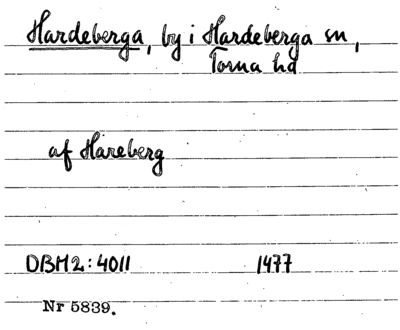 Hardeberga, by i Hardeberga sn,
Torna hd
af Hareberg
DBH2:4011 1477
Nr 5839.